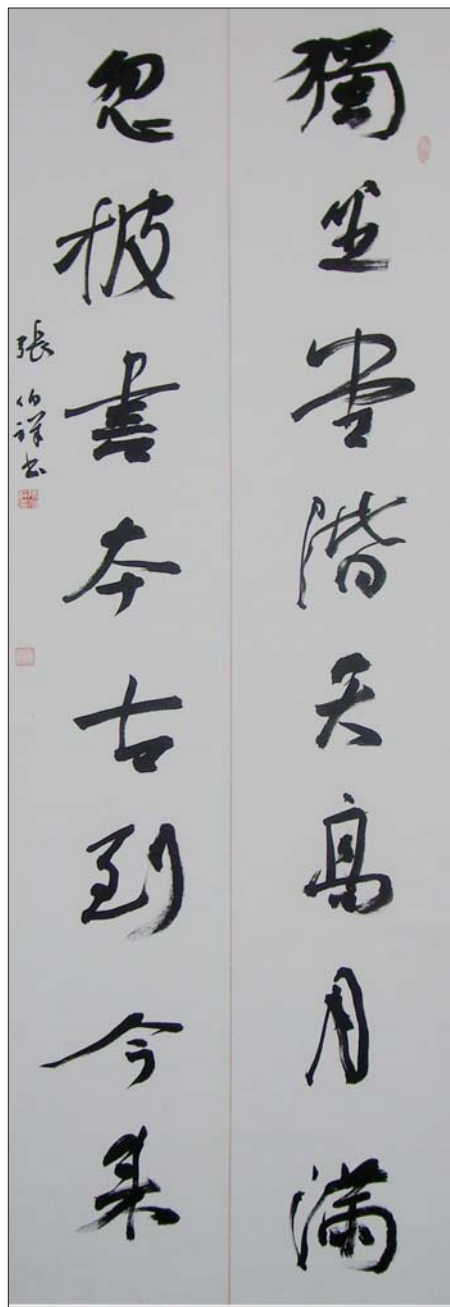 獨坐堂階天高月滿
忽披書本古到今來
張伯祥書